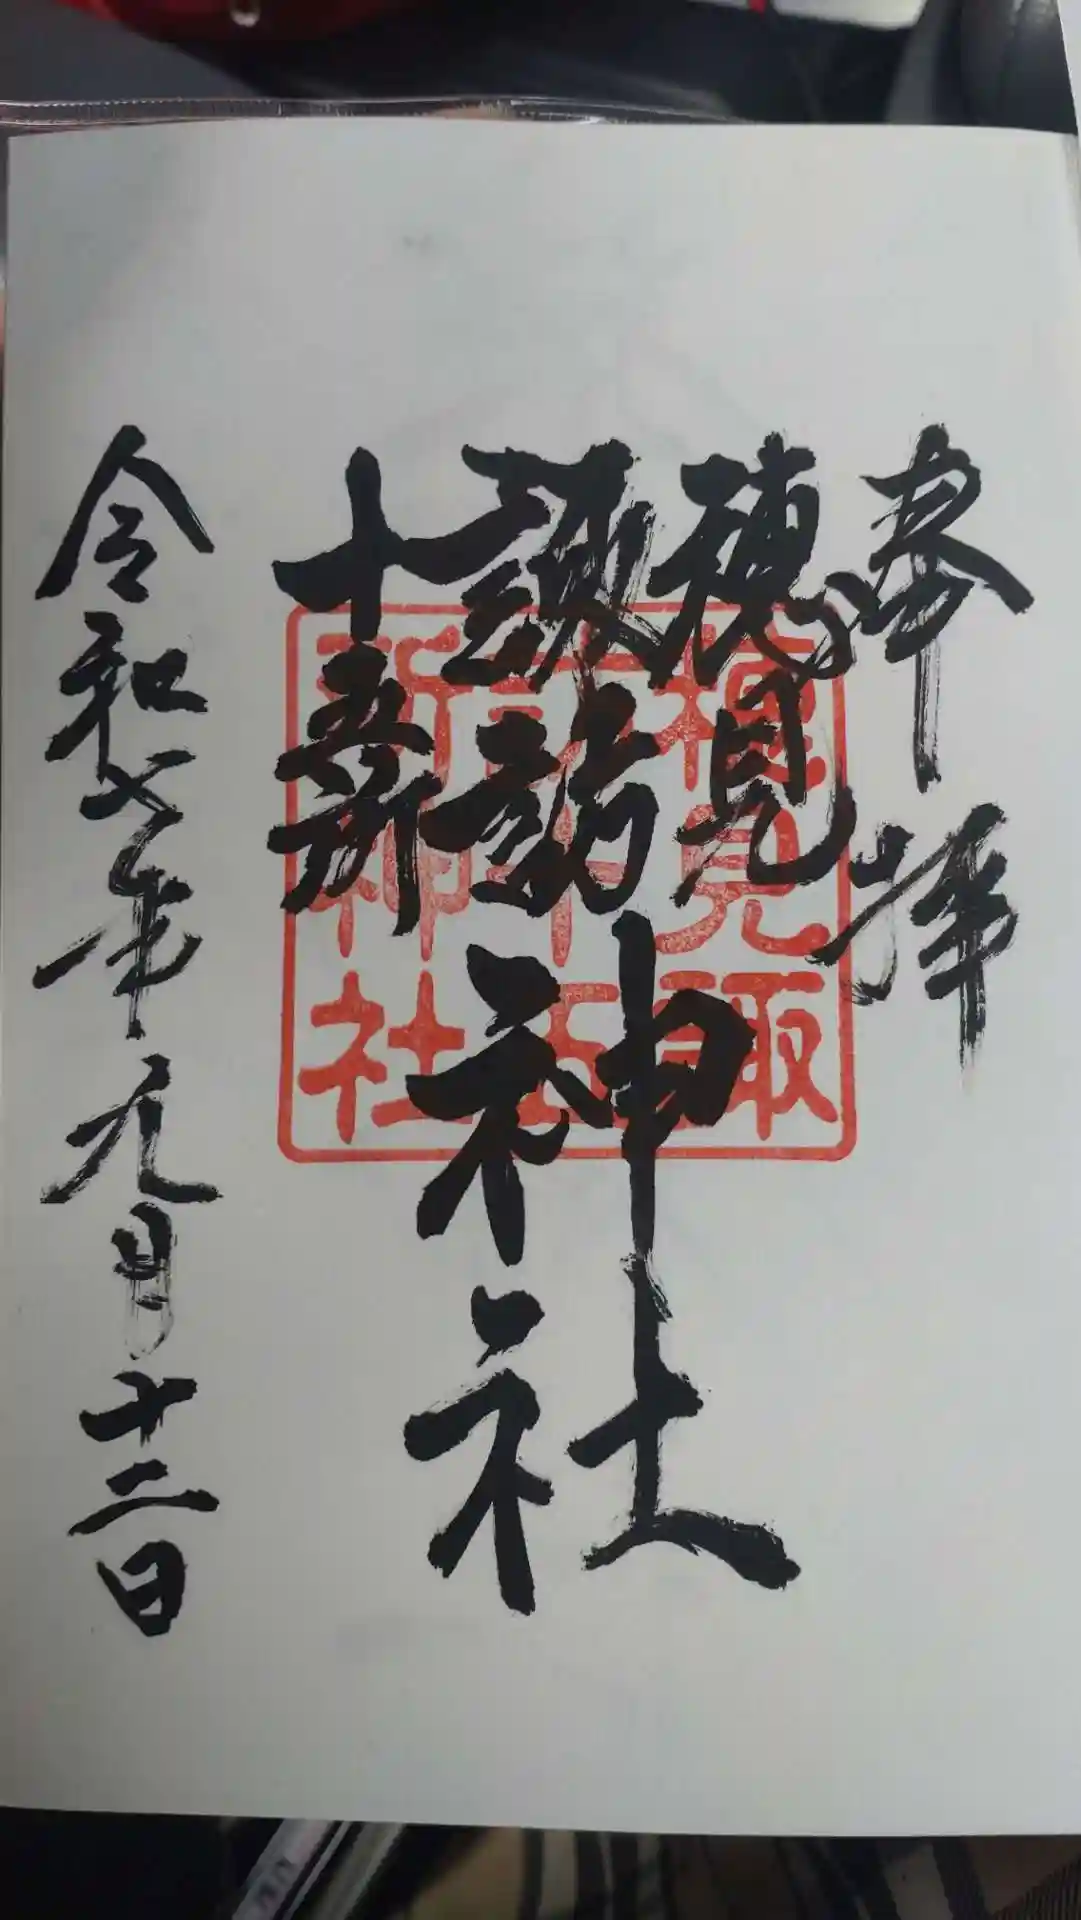 奉拝
穂見
諏訪
十五所
神社
令和七年元月十二日
穂見諏
訪十五
所神社